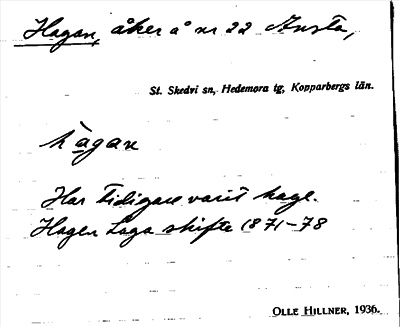 Hagan, åker å nr 22 Ansta,
St. Skedvi sn, Hedemora tg, Kopparbergs län.
hagan
Har tidigare varit hage.
Hagen Laga skifte 1871-78
OLLE HILLNER, 1936.